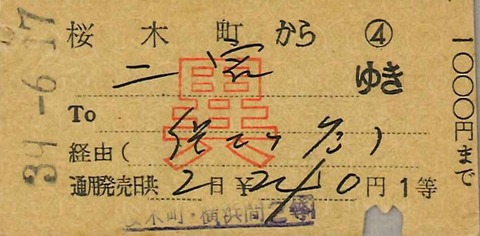 桜木町から ④
二宮 ゆき
To
経由( )
通用発売日共2日¥ 円1等
一〇〇〇円まで
異
34-6.17
木町・横浜間2等